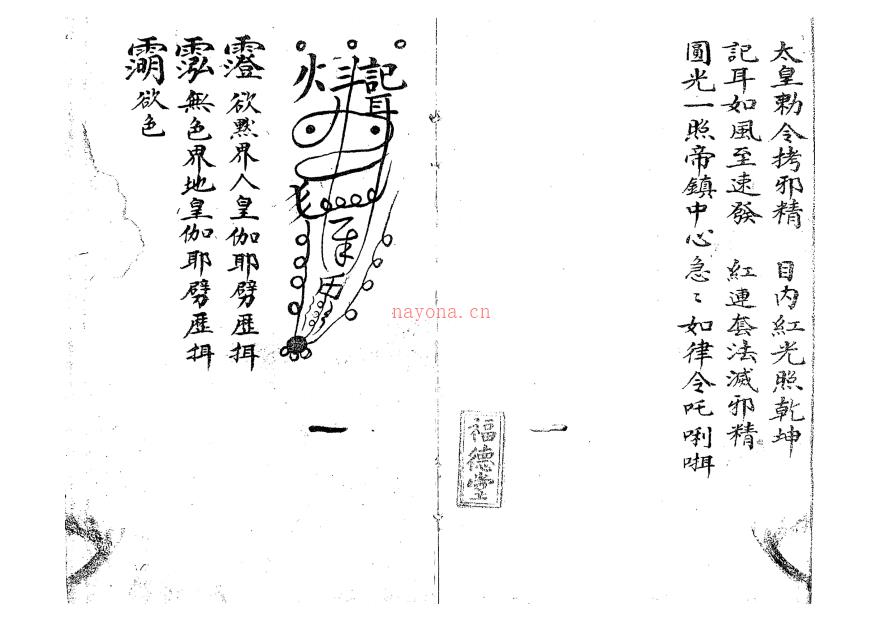 太皇勅令拷邪精　目内紅光照乾坤
記耳如風至速發　紅連套法滅邪精
圓光一照帝鎮中心急〻如律令吒唎㖇
一
福德堂
記耳
斗
火
一
霐無色界地皇伽耶劈歷挕
欲色
nayona.cn